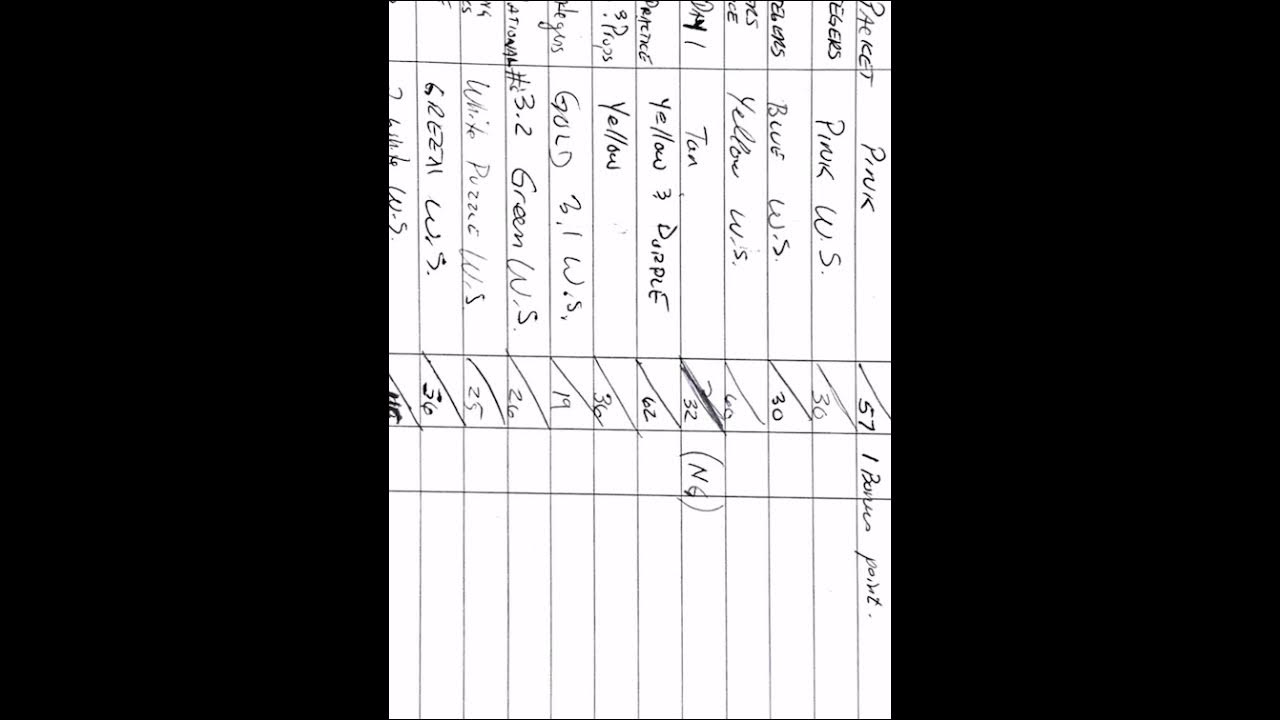 PACKET PINK 57 1 Bonus point.
EGERS PINK W.S. 36
EGERS BLUE W.S. 30
RS CE Yellow W.S. 60
DAY 1 Tan 32 (NG)
PRACTICE Yellow & PURPLE 62
3 Props Yellow 36
GOLD 3.1 W.S. 19
#3.2 Green W.S. 26
White PUZZLE W.S 25
GREEN W.S. 36
White W.S.